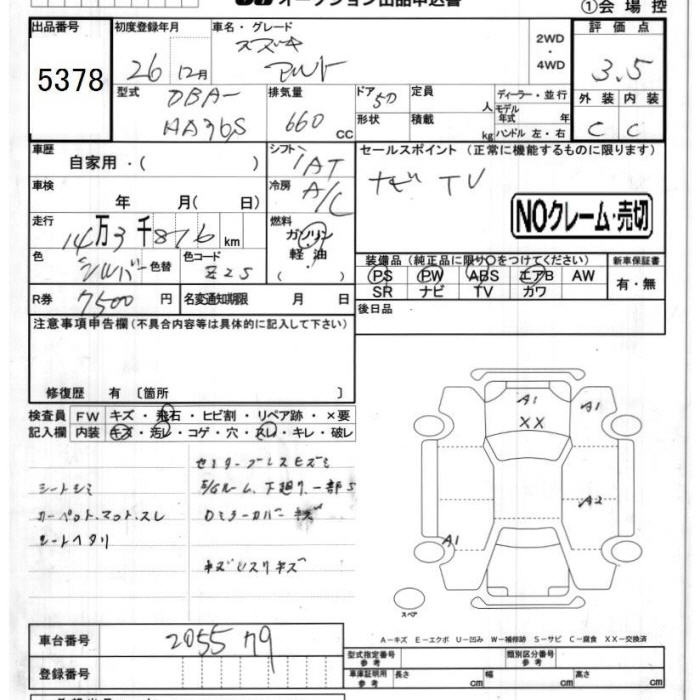 オークション出品申込書
①会場控
出品番号
5378
初度登録年月
26 12月
車名・グレード
スズキ
アルト
2WD
・
4WD
評価点
3.5
外装 内装
C C
型式
DBA-
HA36S
排気量
660 CC
ドア 5D
形状
定員 人
積載 kg
ディーラー・並行
モデル年式 年
ハンドル 左・右
車歴
自家用・( )
シフト
IAT
冷房
A/C
車検
年 月( 日)
走行
14万3千876km
燃料
ガソリン
軽・油
( )
色
シルバー 色替
色コード
Z2S
R券 7500円
名変通知期限 月 日
セールスポイント (正常に機能するものに限ります)
ナビ TV
NOクレーム・売切
装備品(純正品に限り○をつけてください)
PS PW ABS エアB AW
SR ナビ TV カワ
新車保証書
有・無
後日品
注意事項申告欄(不具合内容等は具体的に記入して下さい)
修復歴 有 〔箇所 〕
検査員
記入欄
FW キズ・飛石・ヒビ割・リペア跡・×要
内装 キズ・汚レ・コゲ・穴・スレ・キレ・破レ
シートシミ
カーペット、マット、スレ
シートヘタリ
下廻り一部S
Dミラーカバーキズ
A1
XX
A1
A2
A1
スペア
A-キズ E-エクボ U-凹み W-補修跡 S-サビ C-腐食 XX-交換済
車台番号
205579
登録番号
型式指定番号
参考
類別区分番号
参考
車庫証明用
参考
長さ cm
幅 cm
高さ cm